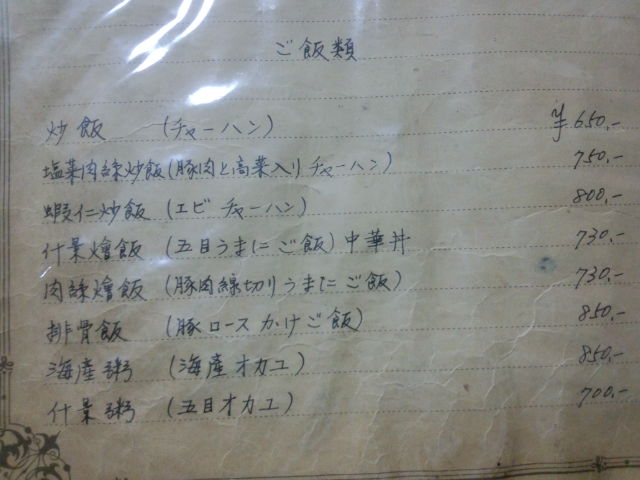 ご飯類
炒飯 (チャーハン) ¥650.-
塩菜肉絲炒飯(豚肉と高菜入りチャーハン) 750.-
蝦仁炒飯 (エビチャーハン) 800.-
什景燴飯 (五目うまにご飯)中華丼 730.-
肉絲燴飯 (豚肉線切りうまにご飯) 730.-
排骨飯 (豚ロースかけご飯) 850.-
海産粥 (海産オカユ) 850.-
什景粥 (五目オカユ) 700.-